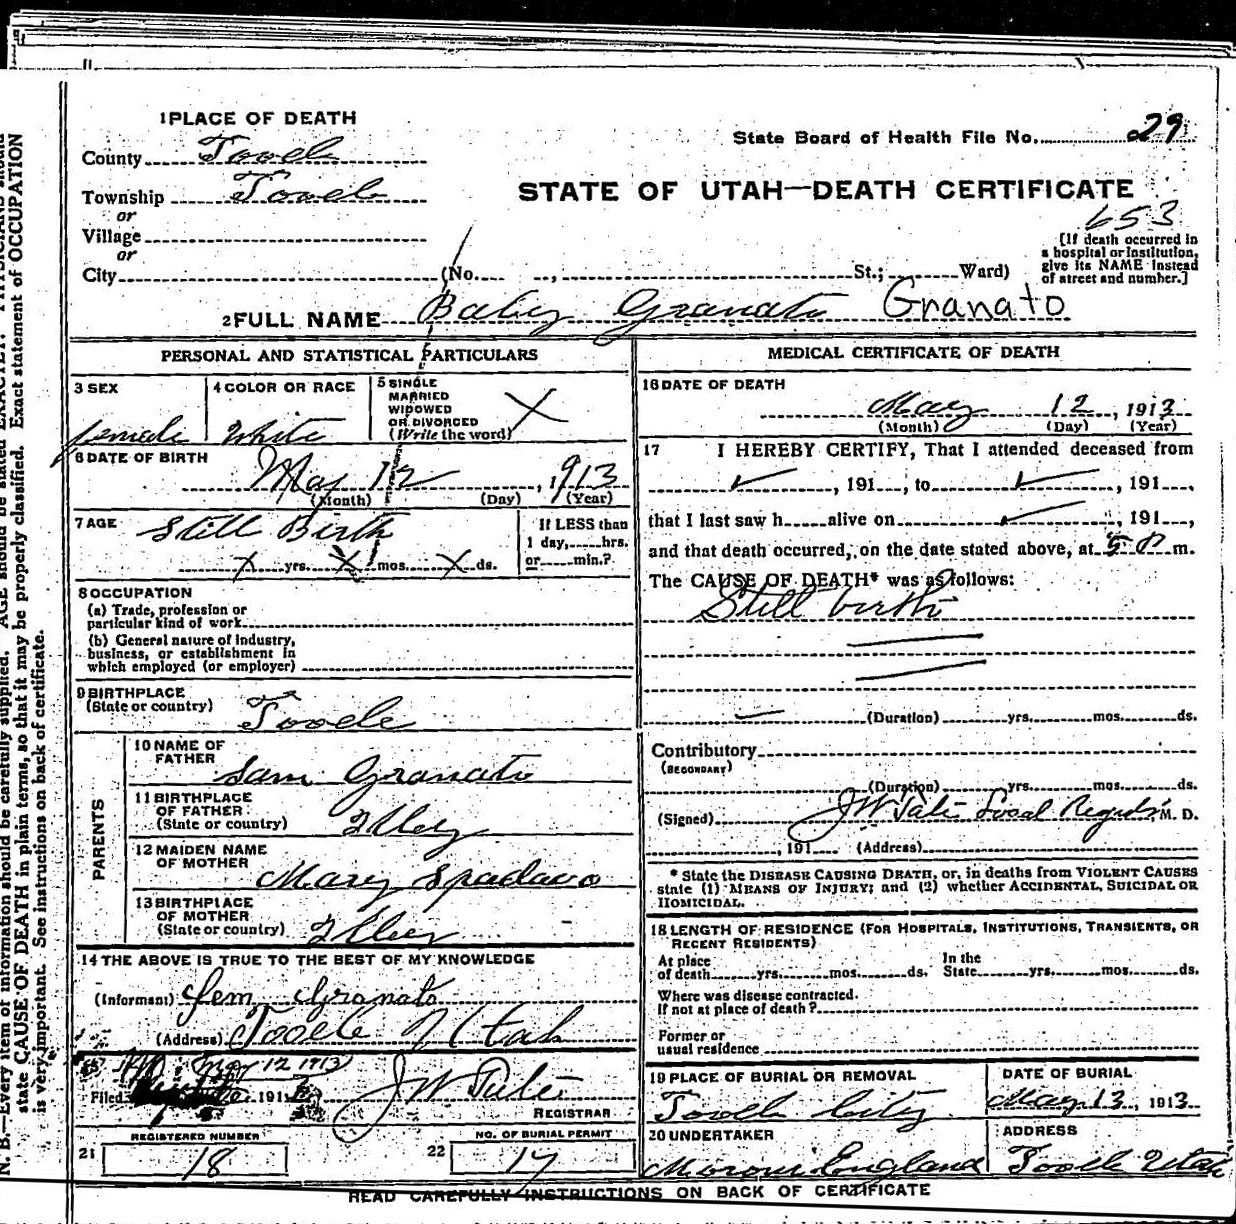 1 PLACE OF DEATH
County Tooele
State Board of Health File No. 29
Township Tooele
STATE OF UTAH—DEATH CERTIFICATE
or
653
Village
or
[If death occurred in
a hospital or institution,
give its NAME instead
of street and number.]
City (No. , St.; Ward)
2 FULL NAME Baby Granato Granato
PERSONAL AND STATISTICAL PARTICULARS
3 SEX
female
4 COLOR OR RACE
White
5 SINGLE
MARRIED
WIDOWED
OR DIVORCED
(Write the word)
X
6 DATE OF BIRTH
May 12, 1913
(Month) (Day) (Year)
7 AGE
Still Birth
X yrs. X mos. X ds.
If LESS than
1 day, hrs.
or min.?
8 OCCUPATION
(a) Trade, profession or
particular kind of work
(b) General nature of industry,
business, or establishment in
which employed (or employer)
9 BIRTHPLACE
(State or country)
Tooele
PARENTS
10 NAME OF
FATHER
Sam Granato
11 BIRTHPLACE
OF FATHER
(State or country)
12 MAIDEN NAME
OF MOTHER
Mary Spadavo
13 BIRTHPLACE
OF MOTHER
(State or country)
14 THE ABOVE IS TRUE TO THE BEST OF MY KNOWLEDGE
(Informant) Sem Granato
(Address) Tooele Utah
May 12 1913
Filed 191
REGISTRAR
REGISTERED NUMBER
21 18
NO. OF BURIAL PERMIT
22 17
MEDICAL CERTIFICATE OF DEATH
16 DATE OF DEATH
May 12, 1913
(Month) (Day) (Year)
17 I HEREBY CERTIFY, That I attended deceased from
, 191 , to , 191 ,
that I last saw h alive on , 191 ,
and that death occurred, on the date stated above, at m.
The CAUSE OF DEATH* was as follows:
Still birth
(Duration) yrs. mos. ds.
Contributory
(SECONDARY)
(Duration) yrs. mos. ds.
(Signed) Local M. D.
, 191 (Address)
* State the DISEASE CAUSING DEATH, or, in deaths from VIOLENT CAUSES
state (1) MEANS OF INJURY; and (2) whether ACCIDENTAL, SUICIDAL OR
HOMICIDAL.
18 LENGTH OF RESIDENCE (FOR HOSPITALS, INSTITUTIONS, TRANSIENTS, OR
RECENT RESIDENTS)
At place
of death yrs. mos. ds.
In the
State yrs. mos. ds.
Where was disease contracted.
If not at place of death?
Former or
usual residence
19 PLACE OF BURIAL OR REMOVAL
Tooele City
DATE OF BURIAL
May 13, 1913
20 UNDERTAKER
England
ADDRESS
Tooele Utah
READ CAREFULLY INSTRUCTIONS ON BACK OF CERTIFICATE
N. B.—Every item of information should be carefully supplied. AGE should be stated EXACTLY. PHYSICIANS should
state CAUSE OF DEATH in plain terms, so that it may be properly classified. Exact statement of OCCUPATION
is very important. See instructions on back of certificate.